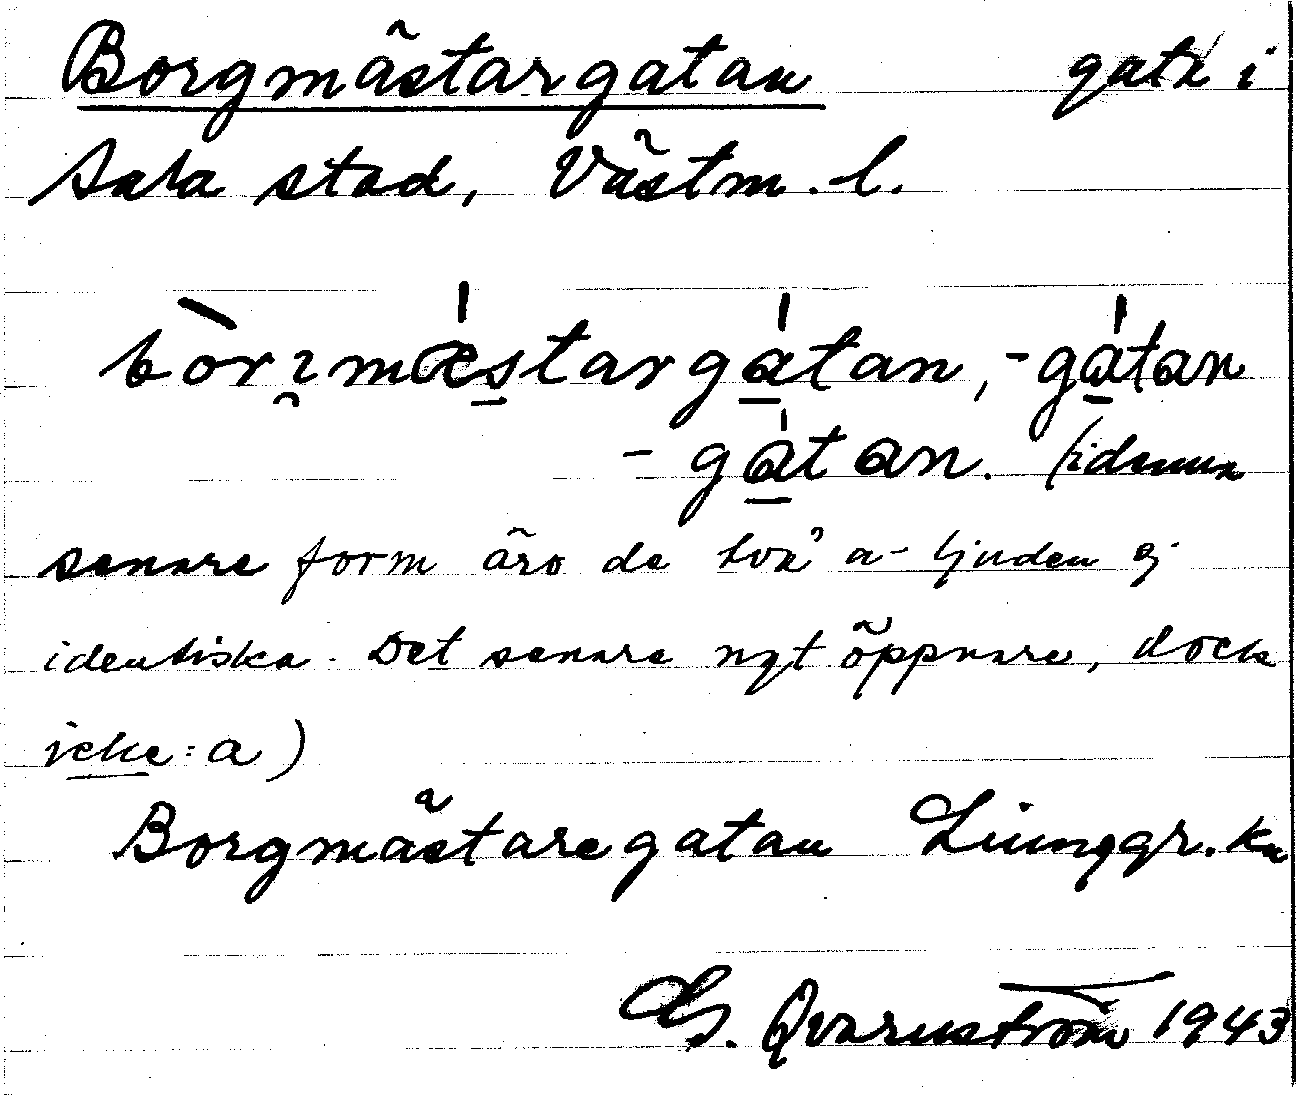 Borgmästargatan gata i
Sala stad, Västm.-l.
bòrımǽstargátan, -gátan
-gátan. (i denna
senare form äro de två a-ljuden ej
identiska. Det senare ngt öppnare, dock
icke: a)
Borgmästaregatan Liunggr. ka
G. Qvarnström 1943